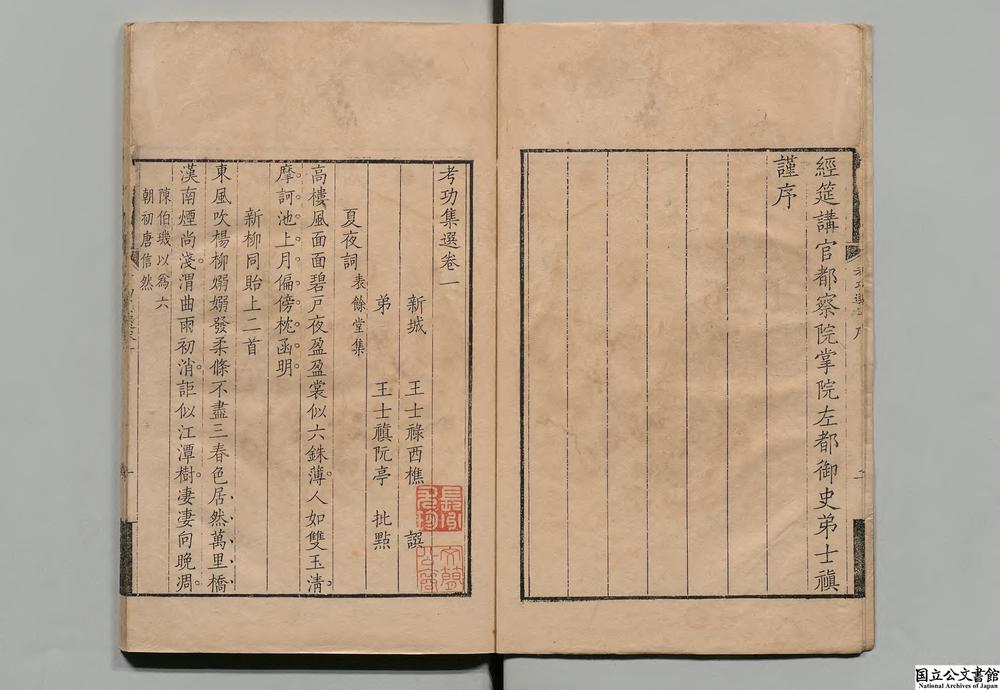 經筵講官都察院掌院左都御史弟士禛
謹序
考功集選卷一
新城 王士祿西樵 譔
弟 王士禛阮亭 批點
夏夜詞 表餘堂集
高樓風面面碧戶夜盈盈裳似六銖薄人如雙玉淸
摩訶池上月偏傍枕函明
新柳同貽上二首
東風吹楊柳嫋嫋發柔條不盡三春色居然萬里橋
漢南煙尚淺渭曲雨初消詎似江潭樹凄凄向晚凋
陳伯璣以爲六
朝初唐信然
国立公文書館
National Archives of Japan